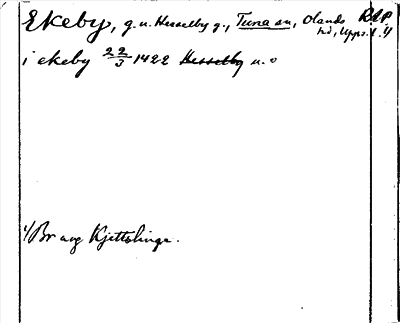 Ekeby, g. u. Hesselby g., Tuna sn, Olands R.A.P.
hd, Upps. l. 1/
i ekeby 22/3 1422 Hesselby u. o
1/ Br ang Kjettslinge.